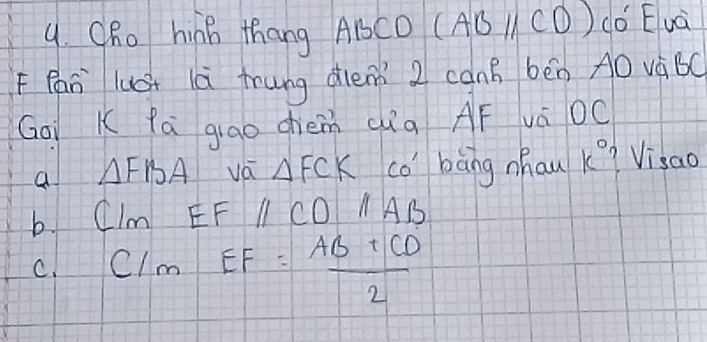 4. Cho hình thang ABCD (AB // CD) có E và
F lần lượt là trung điểm 2 cạnh bên AD và BC
Gọi K là giao điểm của AF và DC
a. ΔFBA và ΔFCK có bằng nhau k°? Vì sao
b. C/m EF // CD // AB
c. C/m EF = \frac{AB + CD}{2}